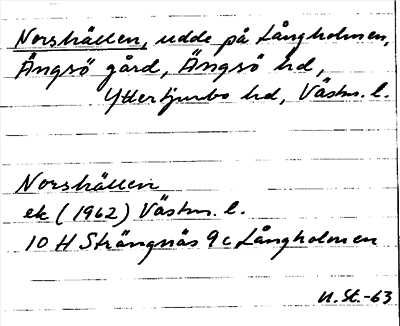 Norshällen, udde på Långholmen,
Ängsö gård, Ängsö hd,
Yttertjurbo hd, Västm. l.
Norshällen
ek (1962) Västm. l.
10 H Strängnäs 9c Långholmen
N. St. -63